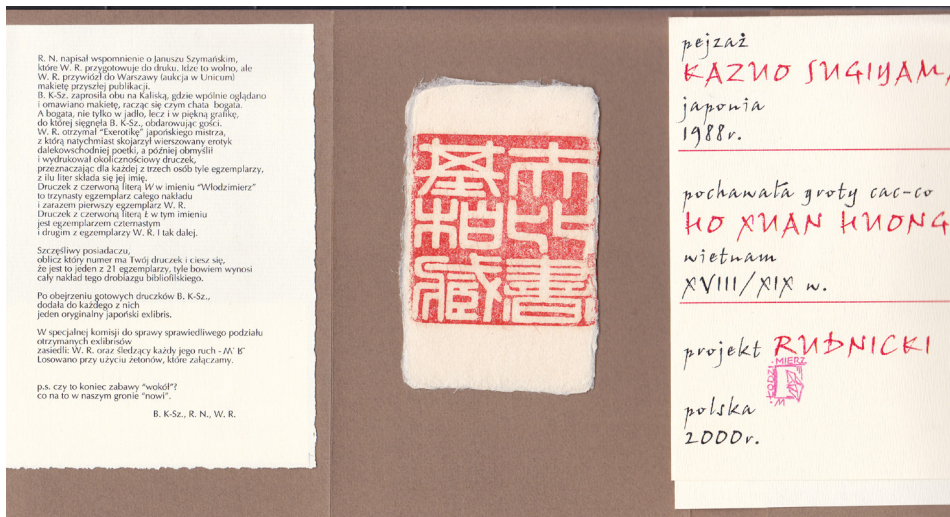 R. N. napisał wspomnienie o Januszu Szymańskim,
które W. R. przygotowuje do druku. Idze to wolno, ale
W. R. przywiózł do Warszawy (aukcja w Unicum)
makietę przyszłej publikacji.
B. K-Sz. zaprosiła obu na Kaliską, gdzie wpólnie oglądano
i omawiano makietę, racząc się czym chata bogata.
A bogata, nie tylko w jadło, lecz i w piękną grafikę,
do której sięgnęła B. K-Sz., obdarowując gości.
W. R. otrzymał "Exerotikę" japońskiego mistrza,
z którą natychmiast skojarzył wierszowany erotyk
dalekowschodniej poetki, a później obmyślił
i wydrukował okolicznościowy druczek,
przeznaczając dla każdej z trzech osób tyle egzemplarzy,
z ilu liter składa się jej imię.
Druczek z czerwoną literą W w imieniu "Włodzimierz"
to trzynasty egzemplarz całego nakładu
i zarazem pierwszy egzemplarz W. R.
Druczek z czerwoną literą Ł w tym imieniu
jest egzemplarzem czternastym
i drugim z egzemplarzy W. R. I tak dalej.
Szczęśliwy posiadaczu,
oblicz który numer ma Twój druczek i ciesz się,
że jest to jeden z 21 egzemplarzy, tyle bowiem wynosi
cały nakład tego drobiazgu bibliofilskiego.
Po obejrzeniu gotowych druczków B. K-Sz.,
dodała do każdego z nich
jeden oryginalny japoński exlibris.
W specjalnej komisji do sprawy sprawiedliwego podziału
otrzymanych exlibrisów
zasiedli: W. R. oraz śledzący każdy jego ruch -
Losowano przy użyciu żetonów, które załączamy.
p.s. czy to koniec zabawy "wokół"?
co na to w naszym gronie "nowi".
B. K-Sz., R. N., W. R.
書
藏
pejzaż
KAZUO SUGIYAMA
japonia
1988r.
pochawała groty cac-co
HO XUAN HUONG
wietnam
XVIII/XIX w.
projekt RUDNICKI
W ŁODZI MIERZ
polska
2000r.